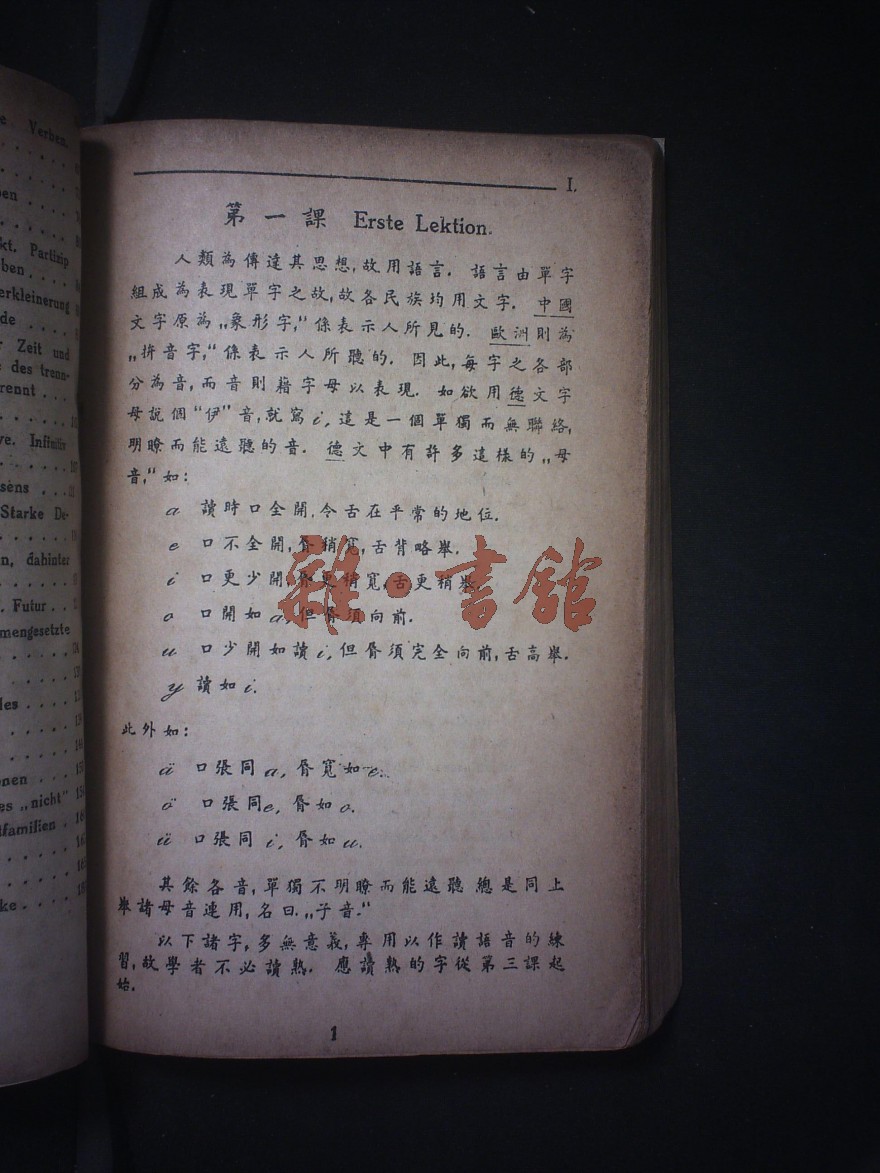 e Verben.
en
kt. Partizip
ben
erkleinerung
de
r Zeit und
des trenn-
rennt
ve. Infinitiv
107
sens
Starke De-
n, dahinter
. Futur
mengesetzte
les
onen
es „nicht"
tfamilien
ke
I.
第一課 Erste Lektion.
人類為傳達其思想,故用語言. 語言由單字
組成為表現單字之故,故各民族均用文字. 中國
文字原為„象形字,"係表示人所見的. 歐洲則為
„拼音字,"係表示人所聽的. 因此,每字之各部
分為音,而音則藉字母以表現. 如欲用德文字
母說個"伊"音,就寫i,這是一個單獨而無聯絡,
明瞭而能遠聽的音. 德文中有許多這樣的„母
音,"如:
a 讀時口全開,令舌在平常的地位.
e 口不全開,脣稍寬,舌背略舉.
i 口更少開,脣更稍寬,舌更稍舉.
o 口開如a,但脣須向前.
u 口少開如讀i,但脣須完全向前,舌高舉.
y 讀如i.
此外如:
ä 口張同a,脣寬如e.
ö 口張同e,脣如o.
ü 口張同i,脣如u.
其餘各音,單獨不明瞭而能遠聽總是同上
舉諸母音連用,名曰„子音."
以下諸字,多無意義,專用以作讀語音的練
習,故學者不必讀熟. 應讀熟的字從第三課起
始.
1
雜·書館